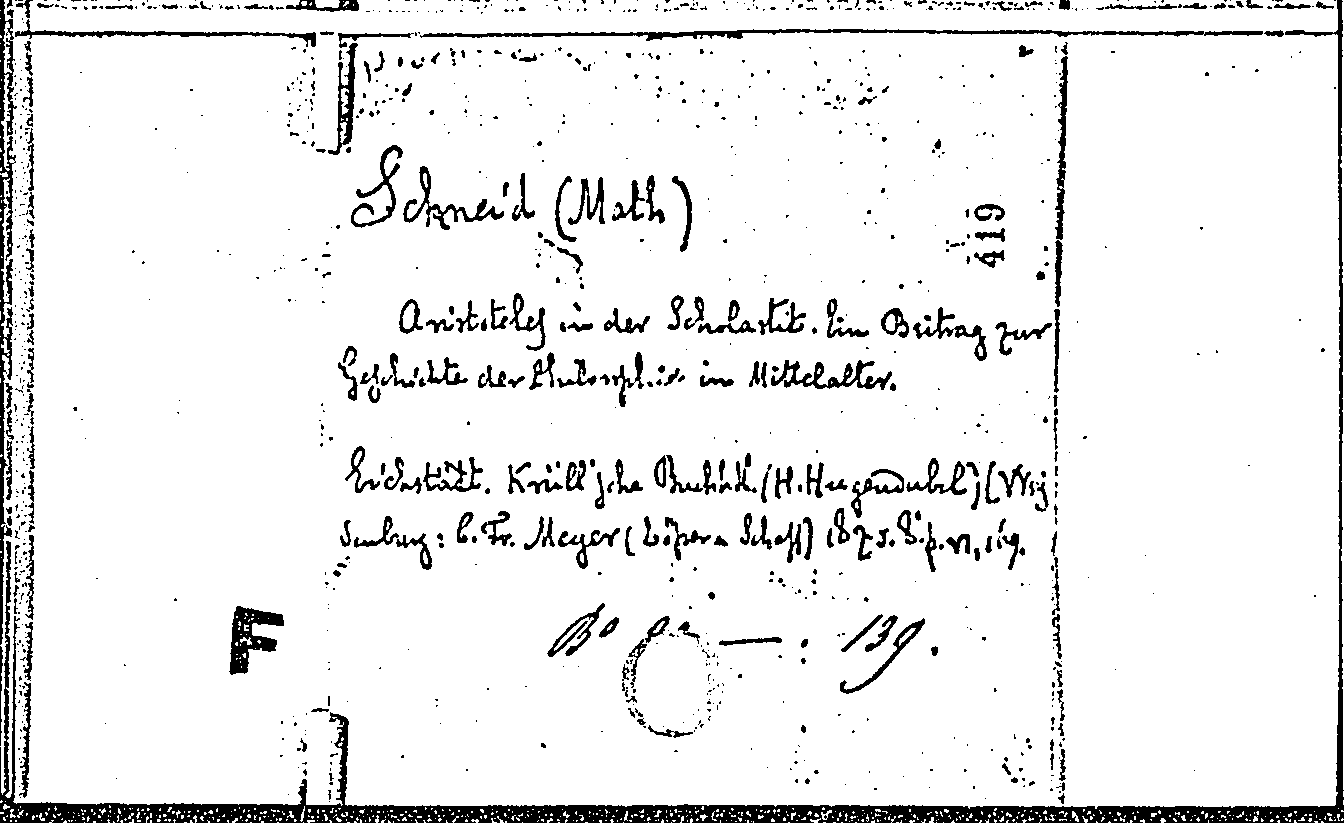 Schneid (Math)
419
Aristoteles in der Scholastik. Ein Beitrag zur
Geschichte der Philosophie im Mittelalter.
Eichstätt. Krüll'sche Buchhdl. (H. Hugendubel) [Weiß
senburg: C. Fr. Meyer ( 1875. 8. p. VI, 169.
F
— : 139.